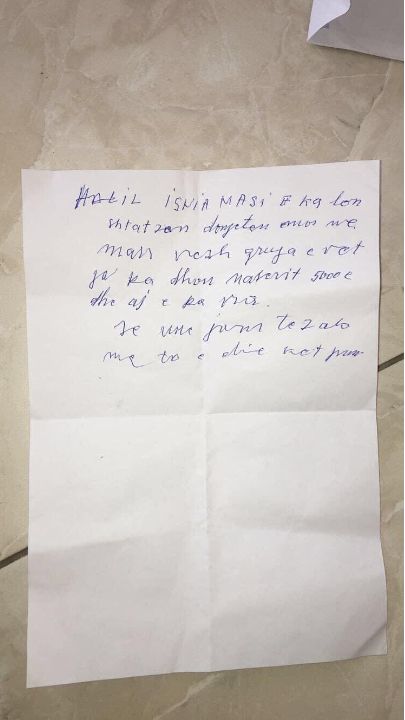 HALIL ISNIA MASI E ka lon
shtatzan dongton mos me
mar vesh gruja e vet
ja ka dhon Naserit 5000 e
dhe aj e ka vra.
se une jam tezak
me to e di